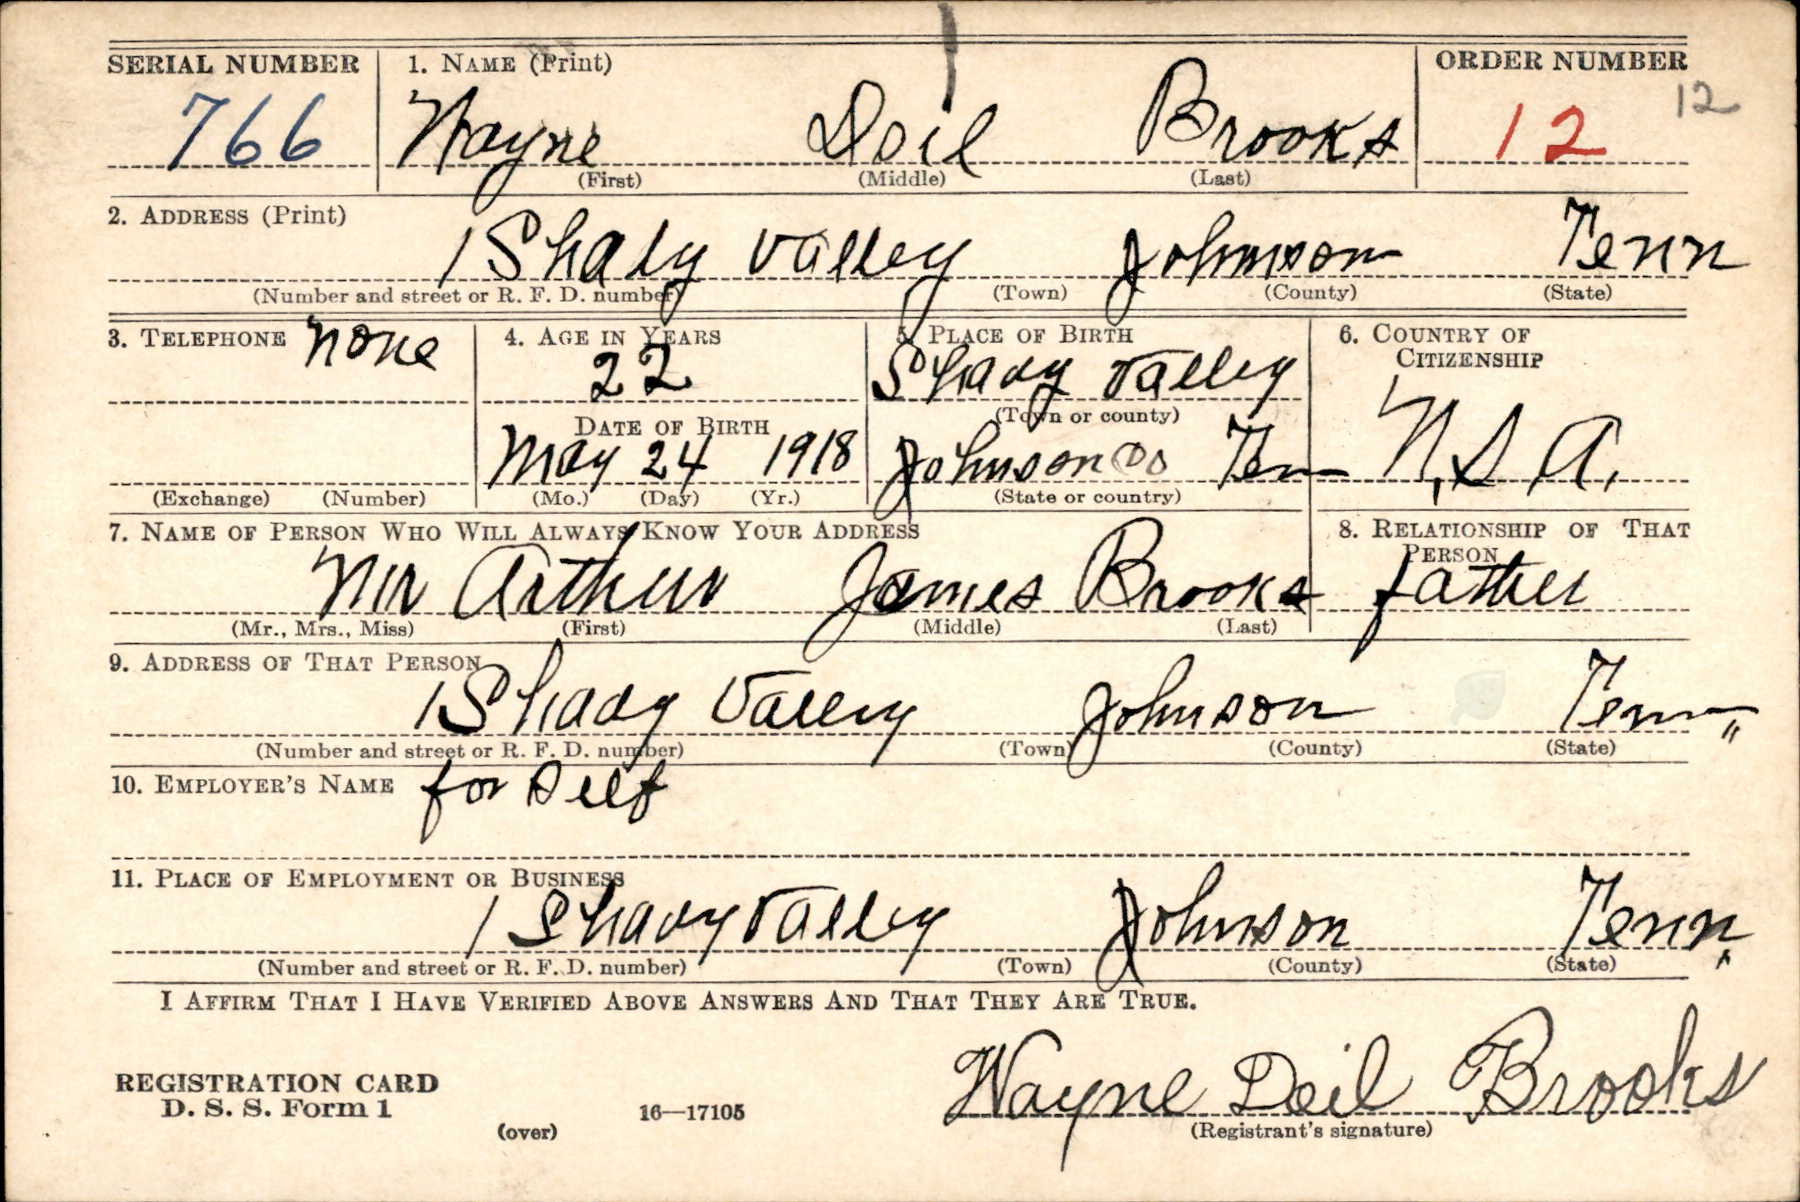 SERIAL NUMBER 1. NAME (Print) ORDER NUMBER
766 Wayne Doil Brooks 12 12
(First) (Middle) (Last)
2. ADDRESS (Print)
1 Shady Valley Johnson Tenn
(Number and street or R. F. D. number) (Town) (County) (State)
3. TELEPHONE none 4. AGE IN YEARS 5. PLACE OF BIRTH 6. COUNTRY OF CITIZENSHIP
22 Shady Valley
(Town or county)
DATE OF BIRTH
May 24 1918 Johnson Co Tenn U.S.A.
(Exchange) (Number) (Mo.) (Day) (Yr.) (State or country)
7. NAME OF PERSON WHO WILL ALWAYS KNOW YOUR ADDRESS 8. RELATIONSHIP OF THAT PERSON
Mr Arthur James Brooks father
(Mr., Mrs., Miss) (First) (Middle) (Last)
9. ADDRESS OF THAT PERSON
1 Shady Valley Johnson Tenn
(Number and street or R. F. D. number) (Town) (County) (State)
10. EMPLOYER'S NAME for Self
11. PLACE OF EMPLOYMENT OR BUSINESS
1 Shady Valley Johnson Tenn
(Number and street or R. F. D. number) (Town) (County) (State)
I AFFIRM THAT I HAVE VERIFIED ABOVE ANSWERS AND THAT THEY ARE TRUE.
REGISTRATION CARD
D. S. S. Form 1
(over) 16—17105
Wayne Doil Brooks
(Registrant's signature)